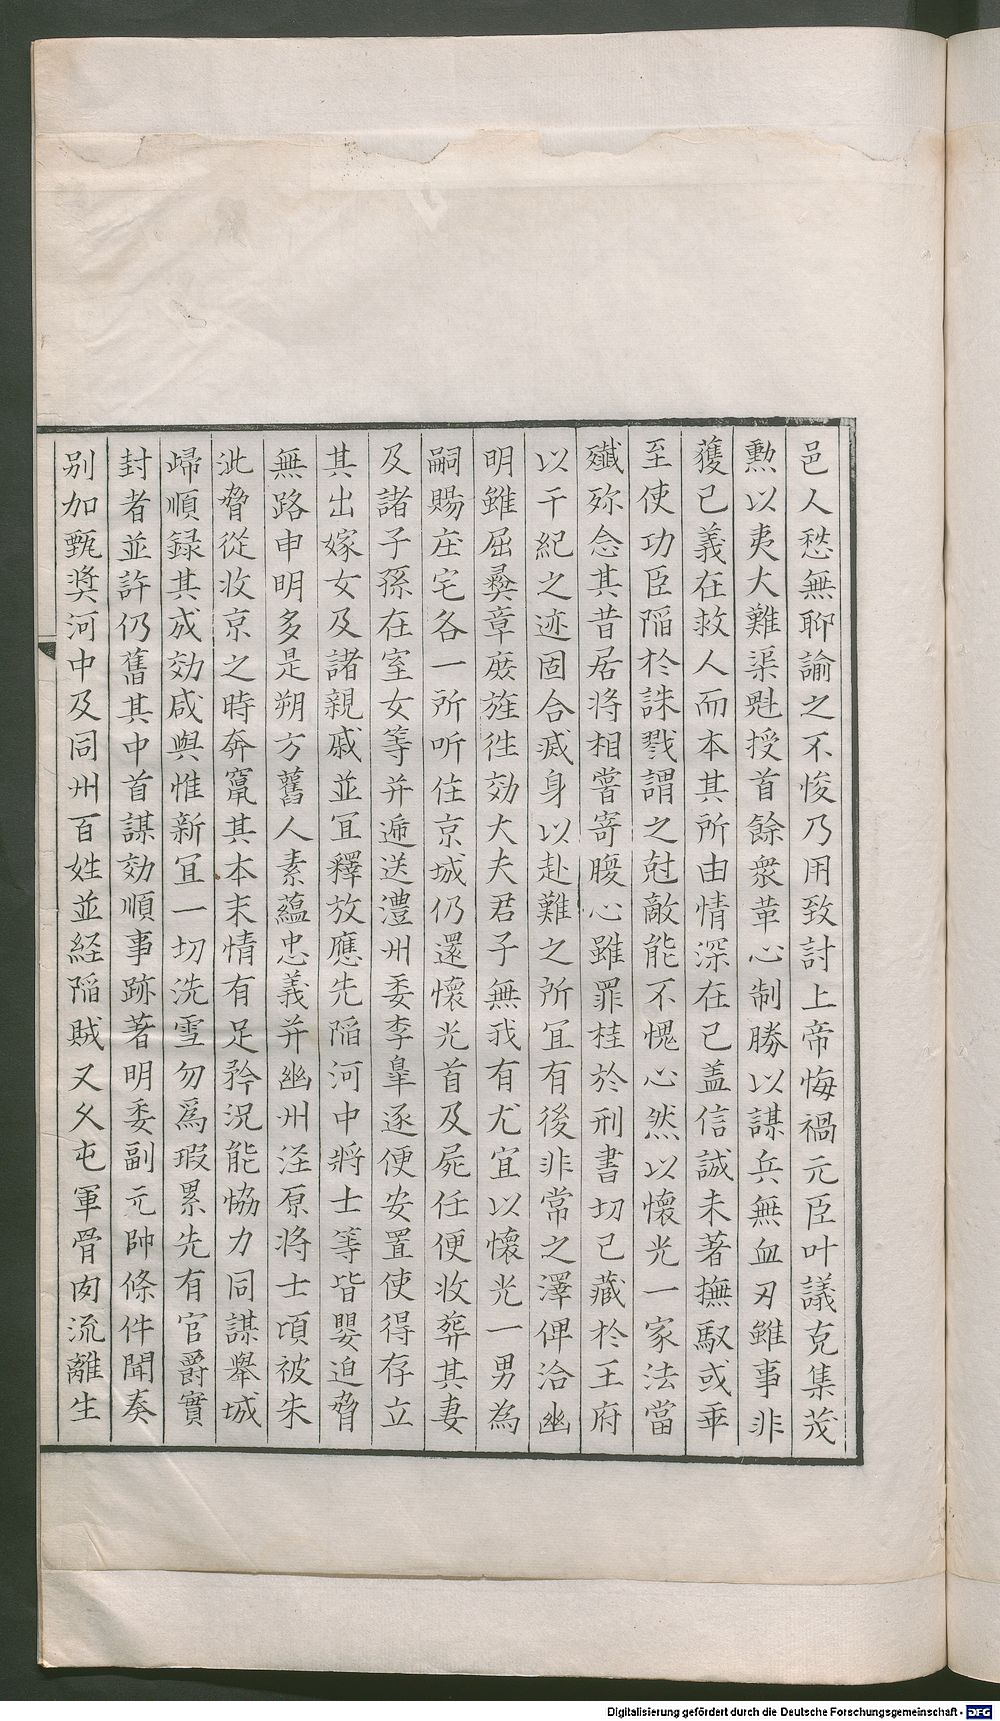 邑人愁無聊諭之不悛乃用致討上帝悔禍元臣叶議克集茂
勲以夷大難渠魁授首餘衆革心制勝以謀兵無血刃雖事非
獲已義在救人而本其所由情深在已盖信誠未著撫馭或乖
至使功臣陷於誅戮謂之尅敵能不愧心然以懷光一家法當
殱殄念其昔居将相嘗寄腹心雖罪桂於刑書切已藏於王府
以干紀之迹固合㓕身以赴難之所冝有後非常之澤俾洽幽
明雖屈彝章庻旌徃効大夫君子無我有尤宜以懷光一男為
嗣賜庄宅各一所听住京城仍還懷光首及屍任便收葬其妻
及諸子孫在室女等并遞送澧州委李臯逐便安置使得存立
其出嫁女及諸親戚並冝釋放應先陷河中將士等皆嬰迫脅
無路申明多是朔方舊人素藴忠義并幽州涇原将士頃被朱
泚脅從收京之時奔竄其本末情有足矜況能恊力同謀舉城
歸順録其成効咸與惟新冝一切洗雪勿爲瑕累先有官爵實
封者並許仍舊其中首謀効順事跡著明委副元帥條件聞奏
别加甄奨河中及同州百姓並経陷賊又久屯軍骨肉流離生
Digitalisierung gefördert durch die Deutsche Forschungsgemeinschaft - DFG